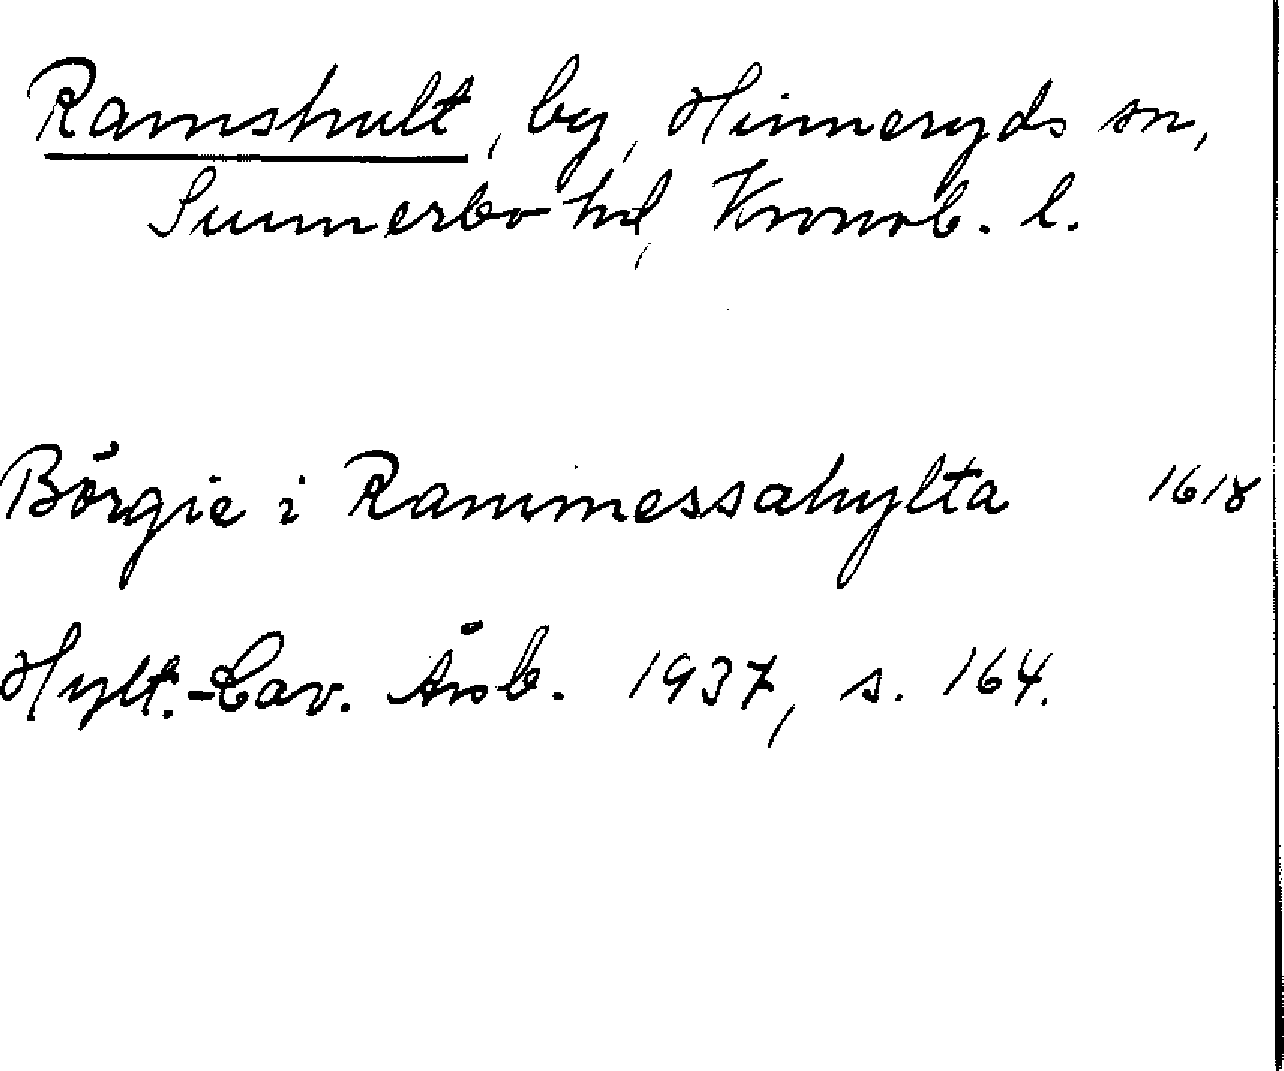 Ramshult, by, Hinneryds sn,
Sunnerbo hd, Kronob. l.
Börgie i Rammessahylta 1618
Hylt.-Cav. Årsb. 1937, s. 164.